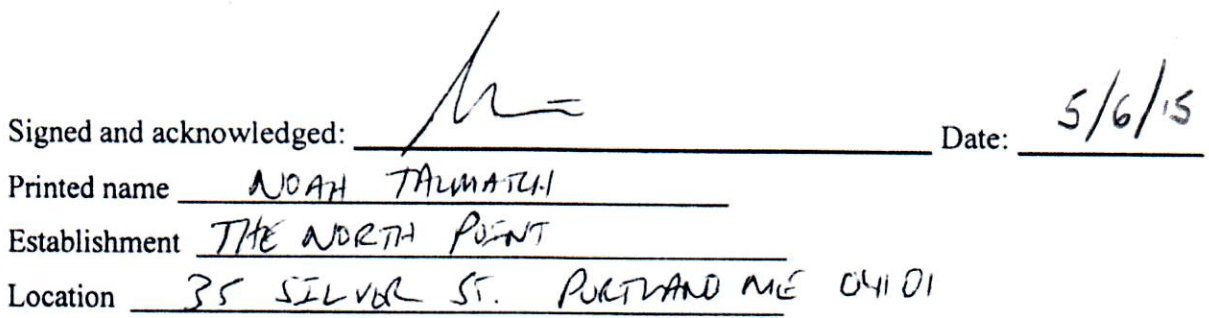 Signed and acknowledged: Date: 5/6/15
Printed name NOAH TALMATCH
Establishment THE NORTH POINT
Location 35 SILVER ST. PORTLAND ME 04101